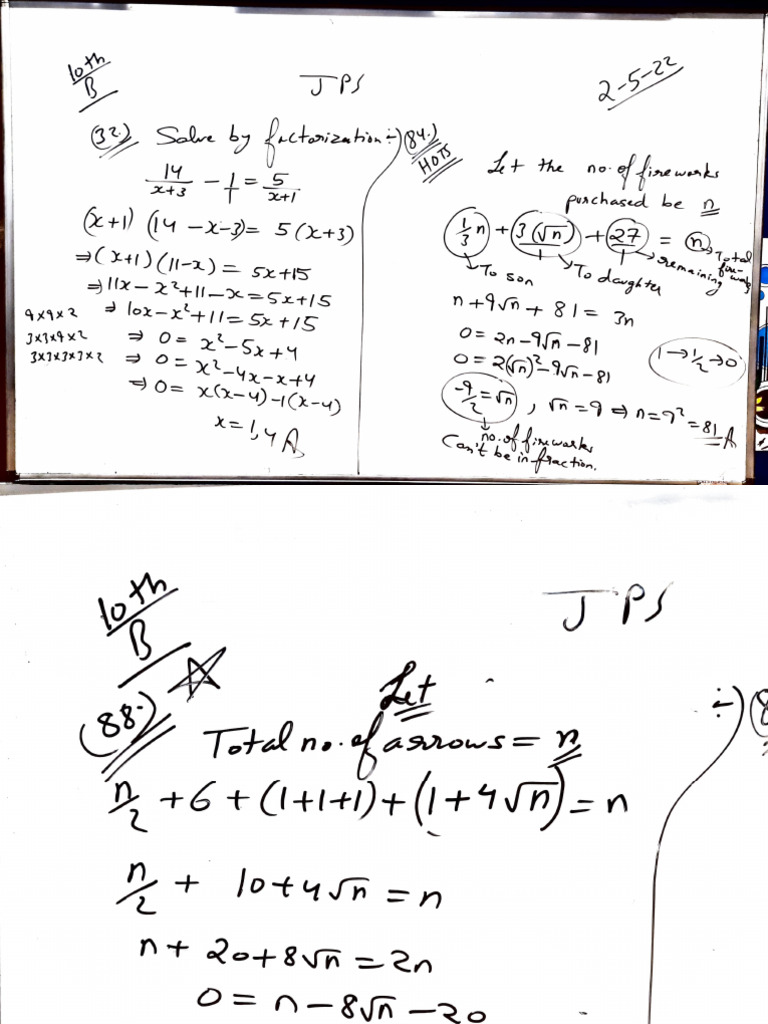 10th
B
JPS
2-5-22
(32.) Solve by factorization:-)
14/(x+3) - 1/1 = 5/(x+1)
(x+1) (14-x-3) = 5(x+3)
⇒(x+1)(11-x) = 5x+15
⇒11x-x²+11-x=5x+15
⇒ 10x-x²+11=5x+15
⇒ 0 = x²-5x+4
⇒ 0 = x²-4x-x+4
⇒ 0= x(x-4)-1(x-4)
x=1,4 A
9x9x2
3x3x9x2
3x3x3x3x2
(84.)
HOTS
Let the no. of fireworks
purchased be n
1/3 n + 3(√n) + 27 = n
To son
To daughter
remaining
Total
fire-
works
n+9√n + 81 = 3n
0 = 2n-9√n-81
0 = 2(√n)²-9√n-81
1→1/2→0
-9/2=√n, √n=9 ⇒ n=9²=81 A
no. of fireworks
Can't be in fraction.
10th
B
JPS
(88.)
Let
÷)
Total no. of arrows = n
n/2 +6+(1+1+1)+(1+4√n)=n
n/2 + 10+4√n = n
n+ 20+8√n = 2n
0 = n-8√n-20